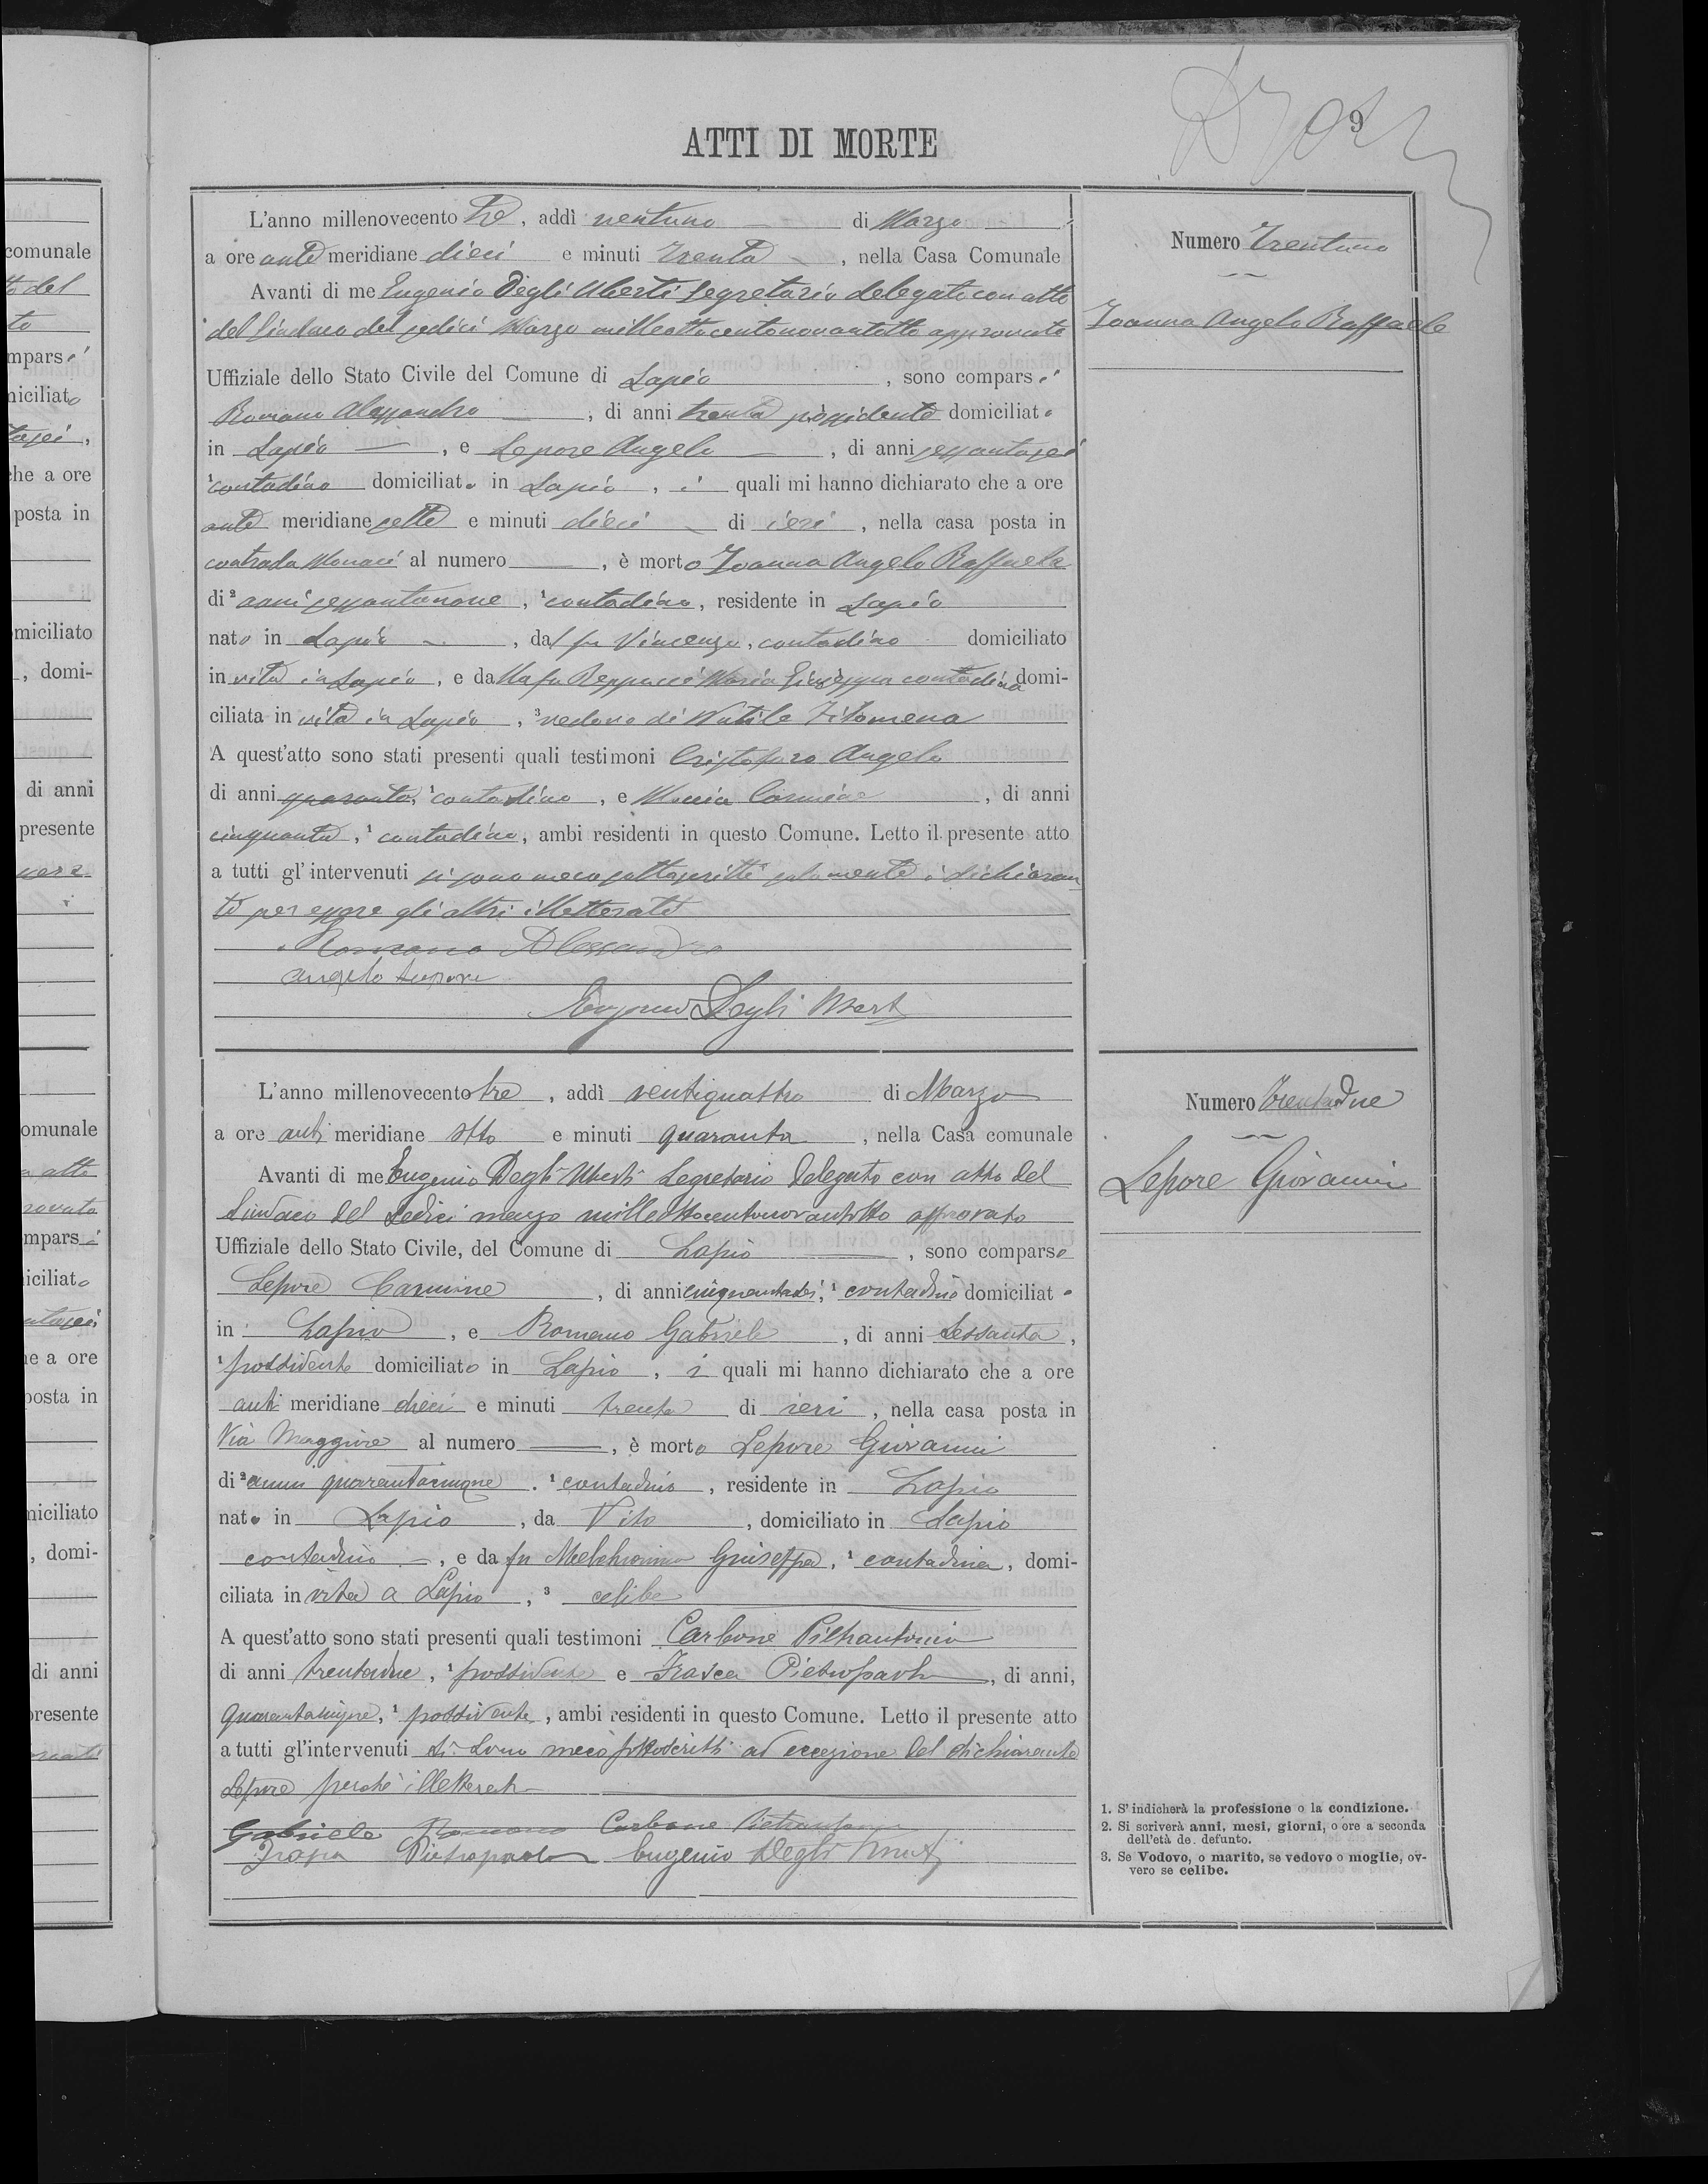 ATTI DI MORTE
9
L'anno millenovecento tre, addì ventuno di Marzo
a ore ante meridiane dieci e minuti trenta, nella Casa Comunale
Avanti di me Eugenio Degli Uberti Segretario delegato con atto
del Sindaco del sedici Marzo milleottocentonovantotto approvato
Uffiziale dello Stato Civile del Comune di Lapio, sono comparsi
Romano Alessandro, di anni trenta possidente domiciliato
in Lapio, e Lepore Angelo, di anni sessantasei
¹contadino domiciliato in Lapio, i quali mi hanno dichiarato che a ore
ante meridiane sette e minuti dieci di ieri, nella casa posta in
contrada Monaci al numero, è morto Ioanna Angelo Raffaele
di ²anni sessantanove, ¹contadino, residente in Lapio
nato in Lapio, dal fu Vincenzo, contadino domiciliato
in vita in Lapio, e dalla fu Maria Giuseppa contadina domi-
ciliata in vita in Lapio, ³vedovo di Nutile Filomena
A quest'atto sono stati presenti quali testimoni Cristofaro Angelo
di anni quaranta, ¹contadino, e Carmine, di anni
cinquanta, ¹contadino, ambi residenti in questo Comune. Letto il presente atto
a tutti gl'intervenuti si sono meco sottoscritti solamente i dichiaran
ti per essere gli altri illetterati
Romano Alessandro
Angelo Lepore
Eugenio Degli Uberti
Numero Trentuno
Ioanna Angelo Raffaele
L'anno millenovecento tre, addì ventiquattro di Marzo
a ore anti meridiane otto e minuti quaranta, nella Casa comunale
Avanti di me Eugenio Degli Uberti Segretario delegato con atto del
Sindaco del sedici marzo milleottocentonovantotto approvato
Uffiziale dello Stato Civile, del Comune di Lapio, sono comparse
Lepore Carmine, di anni cinquantasei, ¹contadino domiciliato
in Lapio, e Romano Gabriele, di anni Sessanta,
¹possidente domiciliato in Lapio, i quali mi hanno dichiarato che a ore
anti meridiane dieci e minuti trenta di ieri, nella casa posta in
Via Maggiore al numero, è morto Lepore Giovanni
di ²anni quarantacinque. ¹contadino, residente in Lapio
nato in Lapio, da Vito, domiciliato in Lapio
contadino, e da fu Melchionna Giuseppa, ¹contadina, domi-
ciliata in vita a Lapio, ³celibe
A quest'atto sono stati presenti quali testimoni Carbone Pietrantonio
di anni trentadue, ¹possidente e Frasca Pietropaolo, di anni,
quarantacinque, ¹possidente, ambi residenti in questo Comune. Letto il presente atto
a tutti gl'intervenuti si sono meco sottoscritti ad eccezione del dichiarante
Lepore perchè illetterato
Gabriele Romano Carbone Pietrantonio
Frasca Pietropaolo Eugenio Degli Uberti
Numero Trentadue
Lepore Giovanni
1. S'indicherà la professione o la condizione.
2. Si scriverà anni, mesi, giorni, o ore a seconda
dell'età de. defunto.
3. Se Vedovo, o marito, se vedovo o moglie, ov-
vero se celibe.